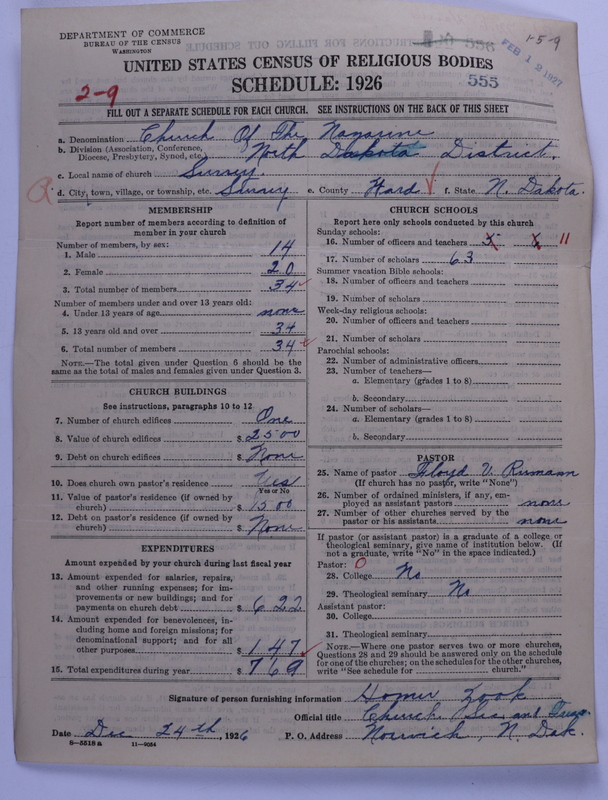 DEPARTMENT OF COMMERCE
BUREAU OF THE CENSUS
WASHINGTON
556
FEB 12 1927
1-5-9
UNITED STATES CENSUS OF RELIGIOUS BODIES
SCHEDULE: 1926
555
2-9
FILL OUT A SEPARATE SCHEDULE FOR EACH CHURCH. SEE INSTRUCTIONS ON THE BACK OF THIS SHEET
a. Denomination Church Of The Nazarine
b. Division (Association, Conference, Diocese, Presbytery, Synod, etc.) North Dakota District.
c. Local name of church Surrey.
d. City, town, village, or township, etc. Surrey e. County Ward f. State N. Dakota.
MEMBERSHIP
Report number of members according to definition of
member in your church
Number of members, by sex:
1. Male 14
2. Female 20
3. Total number of members 34
Number of members under and over 13 years old:
4. Under 13 years of age none
5. 13 years old and over 34
6. Total number of members 34
NOTE.—The total given under Question 6 should be the
same as the total of males and females given under Question 3.
CHURCH BUILDINGS
See instructions, paragraphs 10 to 12
7. Number of church edifices One
8. Value of church edifices $ 2500
9. Debt on church edifices $ None
10. Does church own pastor's residence Yes
Yes or No
11. Value of pastor's residence (if owned by
church) $ 1500
12. Debt on pastor's residence (if owned by
church) $ None
EXPENDITURES
Amount expended by your church during last fiscal year
13. Amount expended for salaries, repairs,
and other running expenses; for im-
provements or new buildings; and for
payments on church debt $ 622
14. Amount expended for benevolences, in-
cluding home and foreign missions; for
denominational support; and for all
other purposes $ 147
15. Total expenditures during year $ 769
CHURCH SCHOOLS
Report here only schools conducted by this church
Sunday schools:
16. Number of officers and teachers 5 6 11
17. Number of scholars 63
Summer vacation Bible schools:
18. Number of officers and teachers
19. Number of scholars
Week-day religious schools:
20. Number of officers and teachers
21. Number of scholars
Parochial schools:
22. Number of administrative officers
23. Number of teachers—
a. Elementary (grades 1 to 8)
b. Secondary
24. Number of scholars—
a. Elementary (grades 1 to 8)
b. Secondary
PASTOR
25. Name of pastor Floyd V. Rumann
(If church has no pastor, write "None")
26. Number of ordained ministers, if any, em-
ployed as assistant pastors none
27. Number of other churches served by the
pastor or his assistants none
If pastor (or assistant pastor) is a graduate of a college or
theological seminary, give name of institution below. (If
not a graduate, write "No" in the space indicated.)
Pastor: 0
28. College No
29. Theological seminary No
Assistant pastor:
30. College
31. Theological seminary
NOTE.—Where one pastor serves two or more churches,
Questions 28 and 29 should be answered only on the schedule
for one of the churches; on the schedules for the other churches,
write "See schedule for church."
Signature of person furnishing information Homer Zook
Official title Church Sec. and Treas.
Date Dec 24th, 1926 P. O. Address Norwich, N. Dak.
8-5518a 11-9054